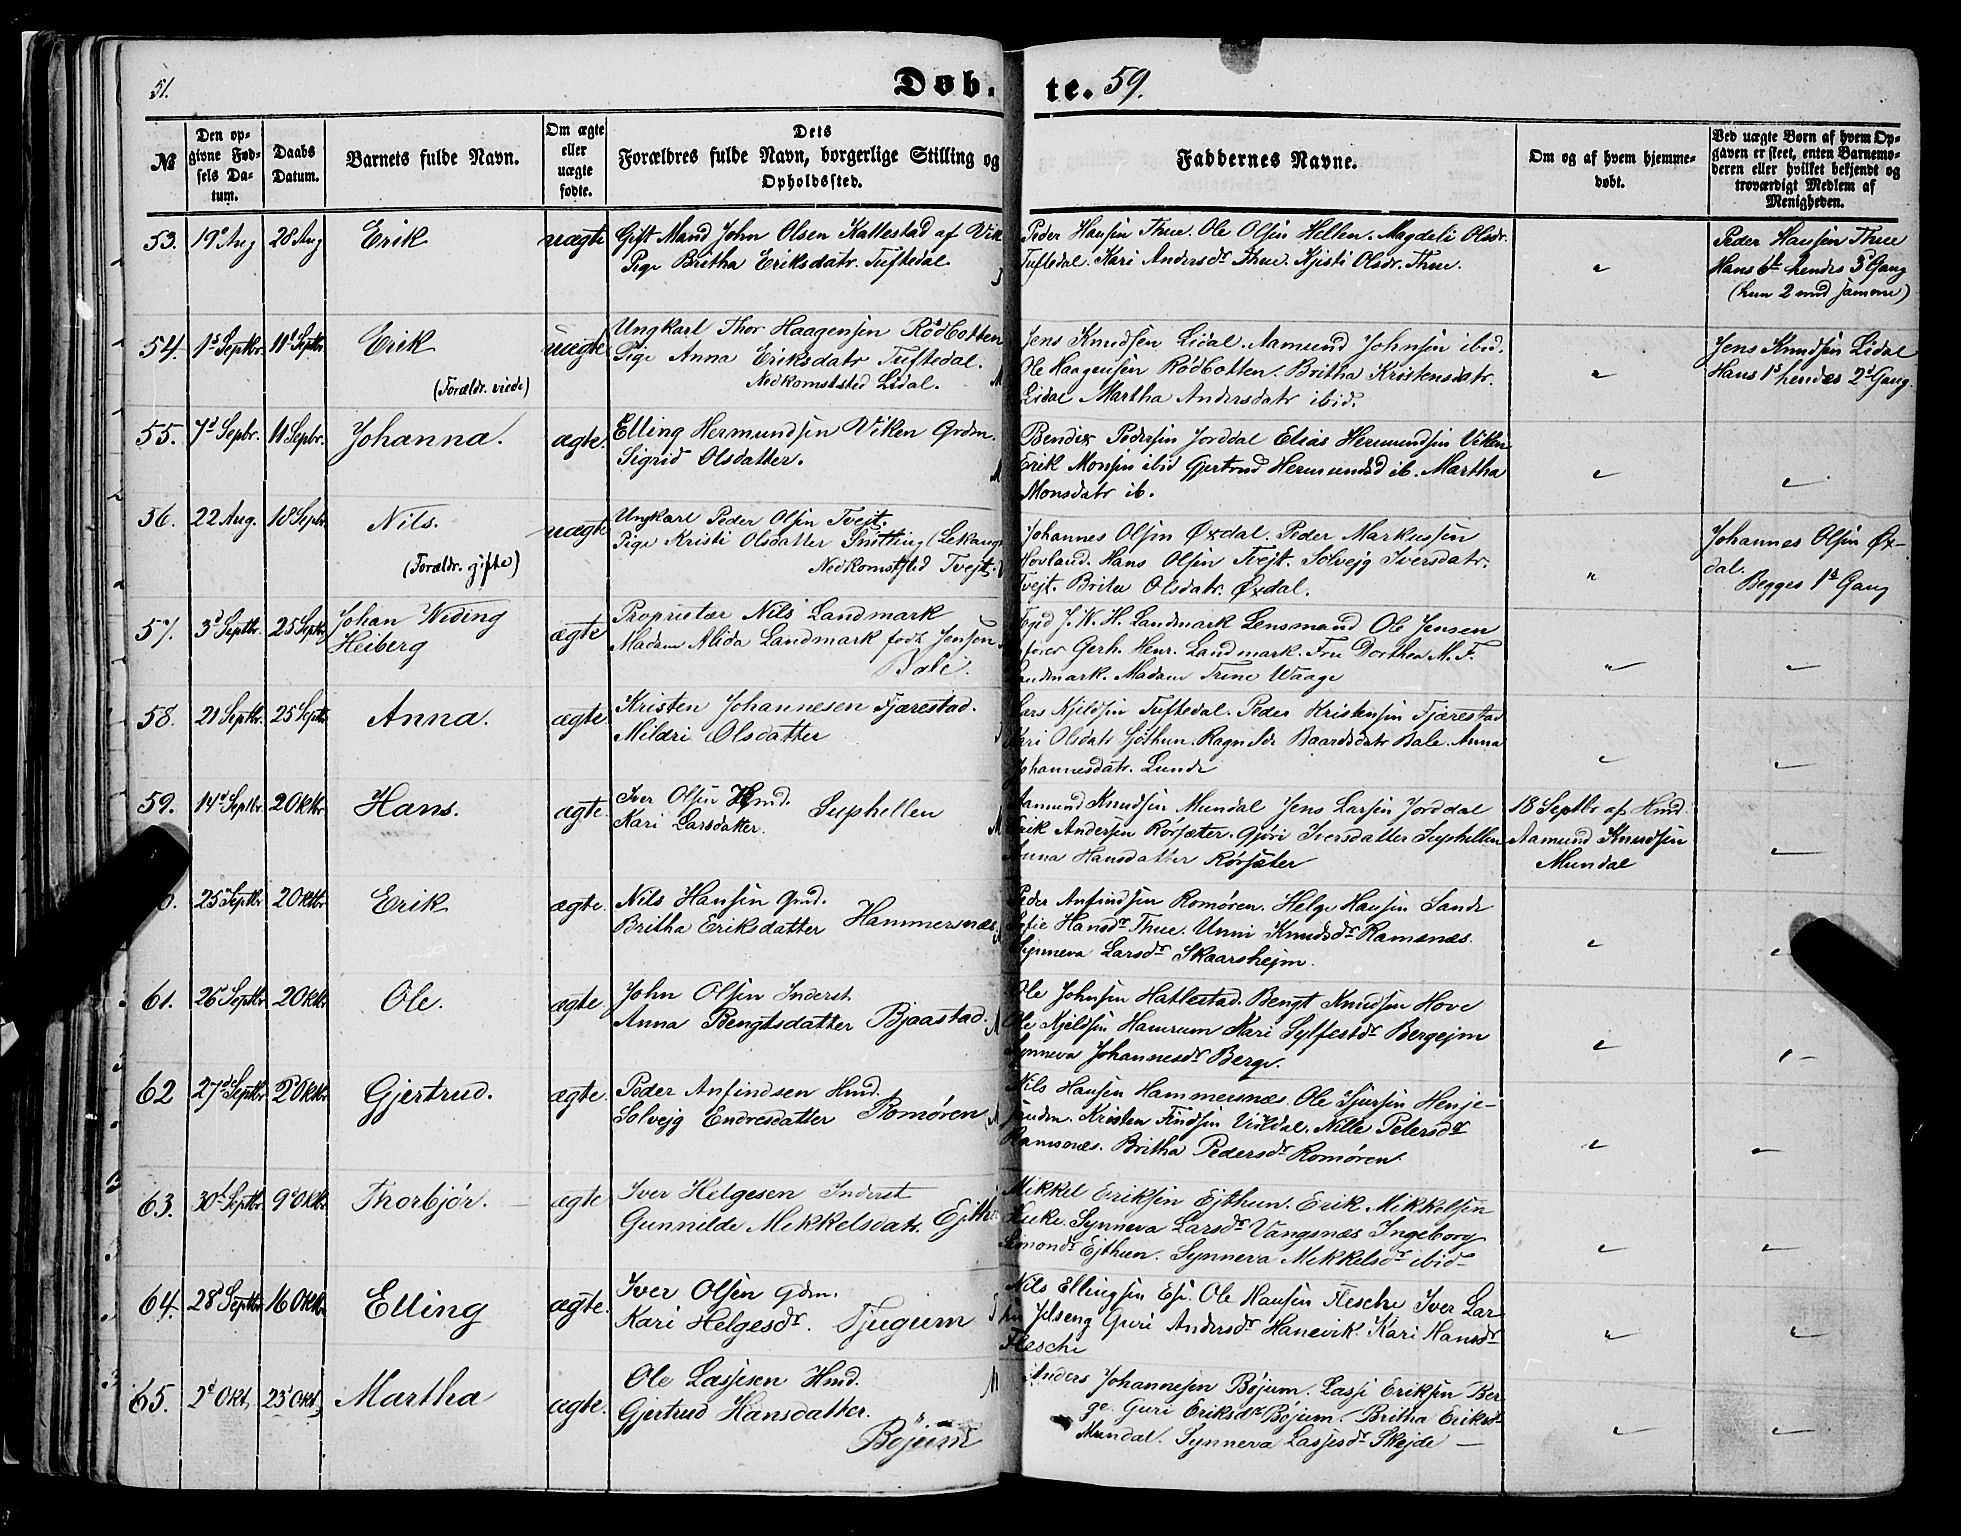 51.
Døb. te. 59.
№
Den opgivne Fødsels Datum.
Daabs Datum.
Barnets fulde Navn.
Om ægte eller uægte fødte.
Dets Forældres fulde Navn, borgerlige Stilling og Opholdssted.
Faddernes Navne.
Om og af hvem hjemmedøbt.
Ved uægte Børn af hvem Opgaven er skeet, enten Barnemoderen eller hvilket bekjendt og troværdigt Medlem af Menigheden.
53. 19 Aug 28 Aug Erik uægte
Gift Mand John Olsen Kattestad af Vik
Pige Britha Eriksdatr. Tuftedal.
Peder Hansen Thue. Ole Olsen Hellen. Magdeli Olsdr.
Tuftedal. Kari Andersdr Thue. Kjisti Olsdr. Thue.
Peder Hansen Thue
Hans 6t hendes 3d Gang
(hun 2 med samme)
54. 1d Septbr. 11 Septbr Erik uægte
(Forældr. viede)
Ungkarl Thor Haagensen Rødbotten
Pige Anna Eriksdatr Tuftedal.
Nedkomststed Lidal.
Jens Knudsen Lidal. Aamund Johnsen ibid.
Ole Haagensen Rødbotten. Britha Kristensdatr.
Lidal Martha Andersdatr ibid.
Jens Knudsen Lidal
Hans 1d hendes 2d Gang.
55. 7d Sepbr. 11 Sepbr. Johanna. ægte.
Elling Hermundsen Viken Grdm.
Sigrid Olsdatter.
Bendix Pedersen Jorddal Elias Hermundsen Viken
Erik Monsen ibid Gjertrud Hermundsd ib. Martha
Monsdatr ib.
56. 22 Aug. 18 Sepbr. Nils. uægte
(Forældr. gifte)
Ungkarl Peder Olsen Tvejt.
Pige Kristi Olsdatter Snitting (Lekang
Nedkomststed Tvejt.
Johannes Olsen Øxdal. Peder Markussen
Hovland. Hans Olsen Tvejt. Sølvejg Iversdatr.
Tvejt. Brita Olsdatr. Øxdal.
Johannes Olsen Øxdal.
Begges 1d Gang
57. 3d Septbr. 25 Septbr Johan Widing
Heiberg ægte
Proprietær Nils Landmark
Madam Alida Landmark født Jensen.
Bale.
J. K. H. Landmark Lensmand Ole Jensen
Gerh. Henr. Landmark. Fru Dorthea M. F.
Landmark. Madam Trine Waage
58. 21 Septbr. 25 Septr Anna. ægte
Kristen Johannesen Fjærestad.
Mildri Olsdatter
Lars Kjeldsen Tuftedal. Peder Kristensen Fjærestad
Kari Olsdatr Sjøthun. Ragnilde Baardsdatr Bale. Anna
Johannesdatr. Lunde
59. 14d Septbr. 2 Oktbr. Hans. ægte.
Iver Olsen Hmd.
Kari Larsdatter. Suphellen
Aamund Knudsen Mundal Jens Larsen Jorddal
Erik Andersen Rørsæter. Gjøri Iversdatter Suphellen
Anna Hansdatter Rørsæter
18 Septbr af Hmd.
Aamund Knudsen
Mundal
25 Septbr 2 Oktbr. Erik ægte.
Nils Hansen Gmd.
Britha Eriksdatter Hammersnæs.
Peder Anfindsen Romøren. Helge Hansen Sande
Sofie Hansdr Thue. Unni Knudsdr Ramsnæs.
Synneva Larsdr Skaarshejm.
61. 26 Septbr 2 Oktbr Ole. ægte.
John Olsen Inderst
Anna Bengtsdatter Bjaastad.
Ole Johnsen Hatlestad. Bengt Knudsen Hove
Ole Kjeldsen Hamrum Kari Sylfestdr Bergejm
Synneva Johannesdr Berge.
62 27de Septbr 2 Oktbr Gjertrud. ægte.
Peder Anfindsen Hmd.
Solvejg Endresdatter Romøren
Nils Hansen Hammersnæs. Ole Sjursen Henjesanden.
Kristen Findsen Vikdal. Nille Petersdr
Ramsnæs. Britha Pedersdr Romøren.
63. 30d Septbr 9d Oktbr. Thorbjør. ægte
Iver Helgesen Inderst
Gunnilde Mikkelsdatr. Ejthun
Mikkel Eriksen Ejthun. Erik Mikkelsen
Synneva Larsdr Vangsnæs Ingeborg
Simonsdr Ejthun. Synneva Mikkelsdr ibid
64. 28d Septbr 16 Oktbr Elling ægte.
Iver Olsen Gdm.
Kari Helgesdr. Tjugum
Nils Ellingsen Ese. Ole Hansen Flesche Iver Larsen
Jelseng Guri Andersdr Hanevik. Kari Hansdr
Flesche
65. 2d Okt. 23d Okt. Martha ægte.
Ole Lassesen Hmd.
Gjertrud Hansdatter.
Bøjum
Anders Johannesen Bøjum. Lasse Eriksen Berge.
Guri Eriksdr Bøjum. Britha Eriksdr
Mundal. Synneva Lassesdr Skejde